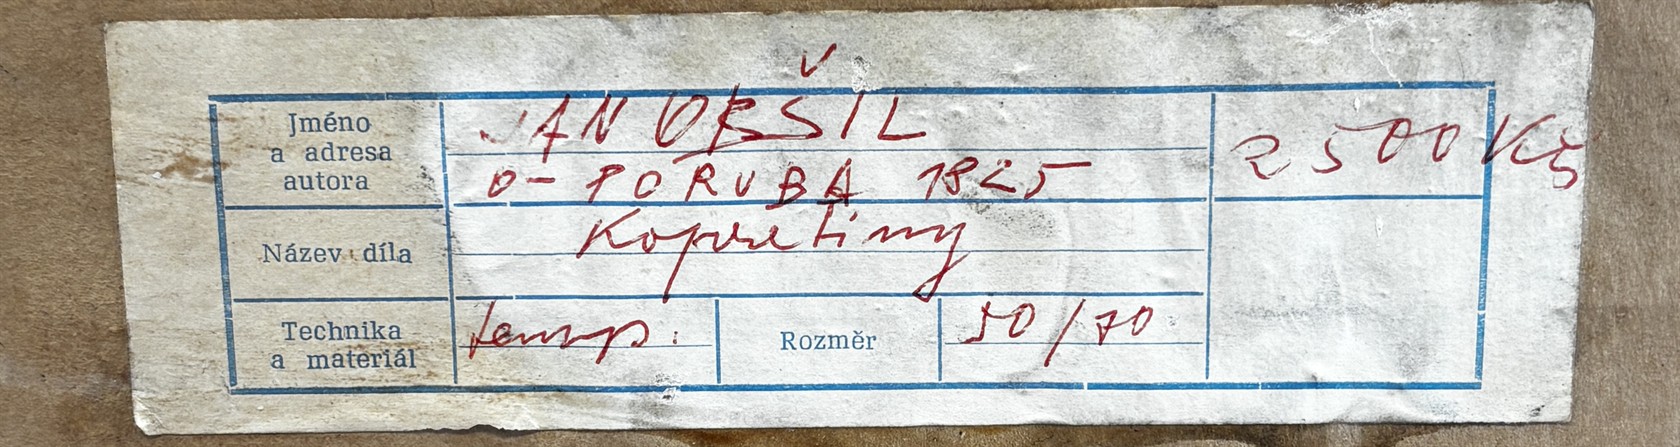 Jméno
a adresa
autora
JAN OBŠIL
O-PORUBA 1825
2500 Kčs
Název díla
Kopretiny
Technika
a materiál
temp.
Rozměr
50/70